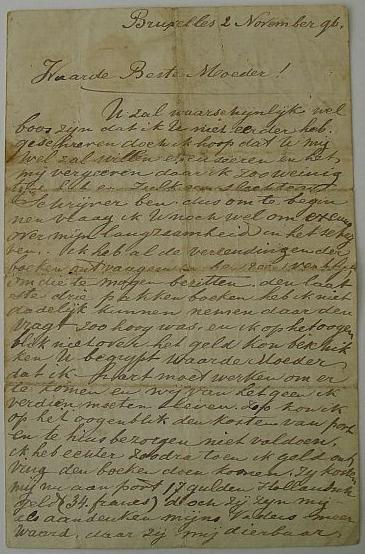 Bruxelles 2 November 96.
Waarde Beste Moeder!
U zal waarschijnlijk wel
boos zijn dat ik U niet eerder heb
geschreven doch ik hoop dat U mij
wel zal willen excuseeren en het
mij vergeven daar ik zoo weinig
tijd heb en zulk een slechten
Schrijver ben, dus om te begin
nen vraag ik U noch wel om excuus
over mijn langzaamheid in het schrij
ven. Ik heb al de verzendingen der
boeken ontvangen en ben zoo
om die te mogen bezitten, den laat
ste drie pakken boeken heb ik niet
dadelijk kunnen nemen daar den
vragt zoo hoog was, en ik op het oogen
blik niet over het geld kon beschik
ken U begrypt Waarde Moeder
dat ik hart moet werken om er
te komen en wij van het geen ik
verdien moeten leven, dus kon ik
op het oogenblik den kosten van port
en te huis bezorgen niet voldoen,
ik heb echter zoodra toen ik geld ont
ving den boeken doen komen, zy koste
mij nu aan port 17 gulden Hollandsch
geld (34 francs) doch zij zyn mij
als aandenken mijns Vaders meer
waard, daar zij mij dierbaar